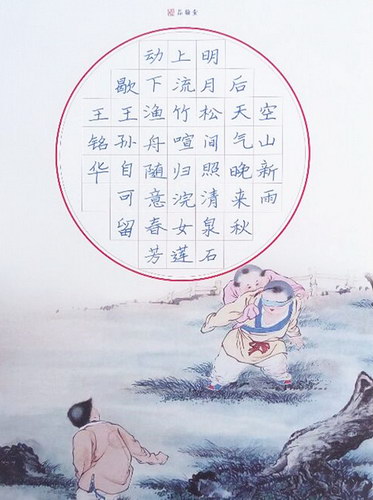 空山新雨
后天气晚来秋
明月松间照清泉石
上流竹喧归浣女莲
动下渔舟随意春芳
歇王孙自可留
王铭华